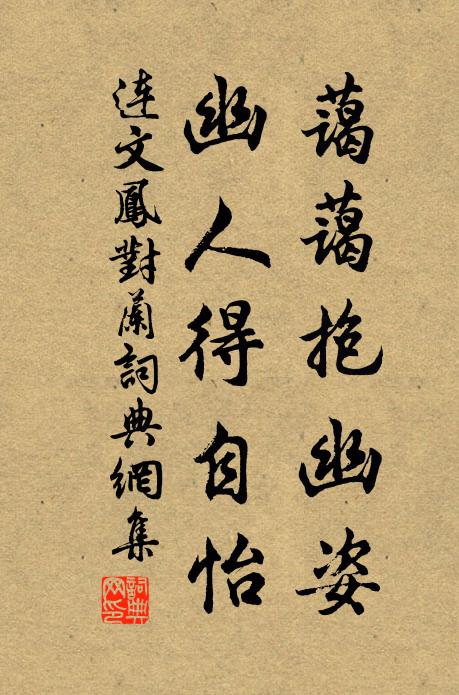 藹藹抱幽姿
幽人得自怡
連文鳳對蘭詞典網集
詞典
网印